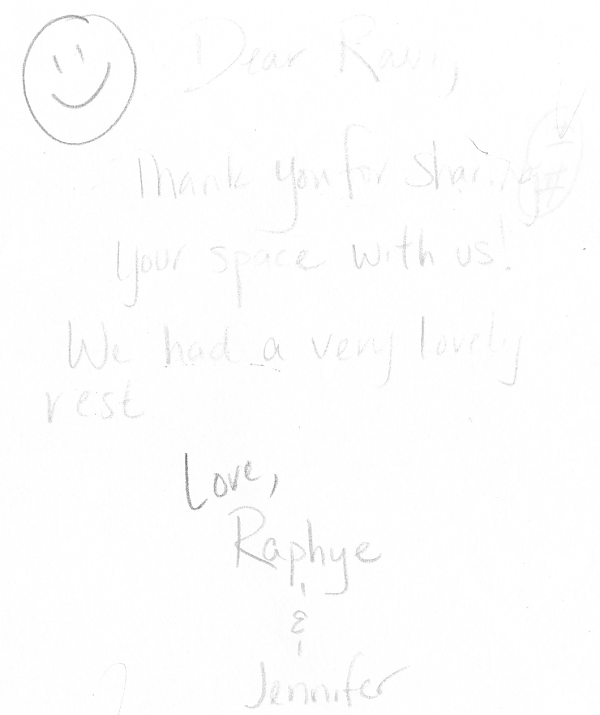 Dear Ravi,
Thank you for sharing
your space with us!
We had a very lovely
rest
Love,
Raphye
&
Jennifer